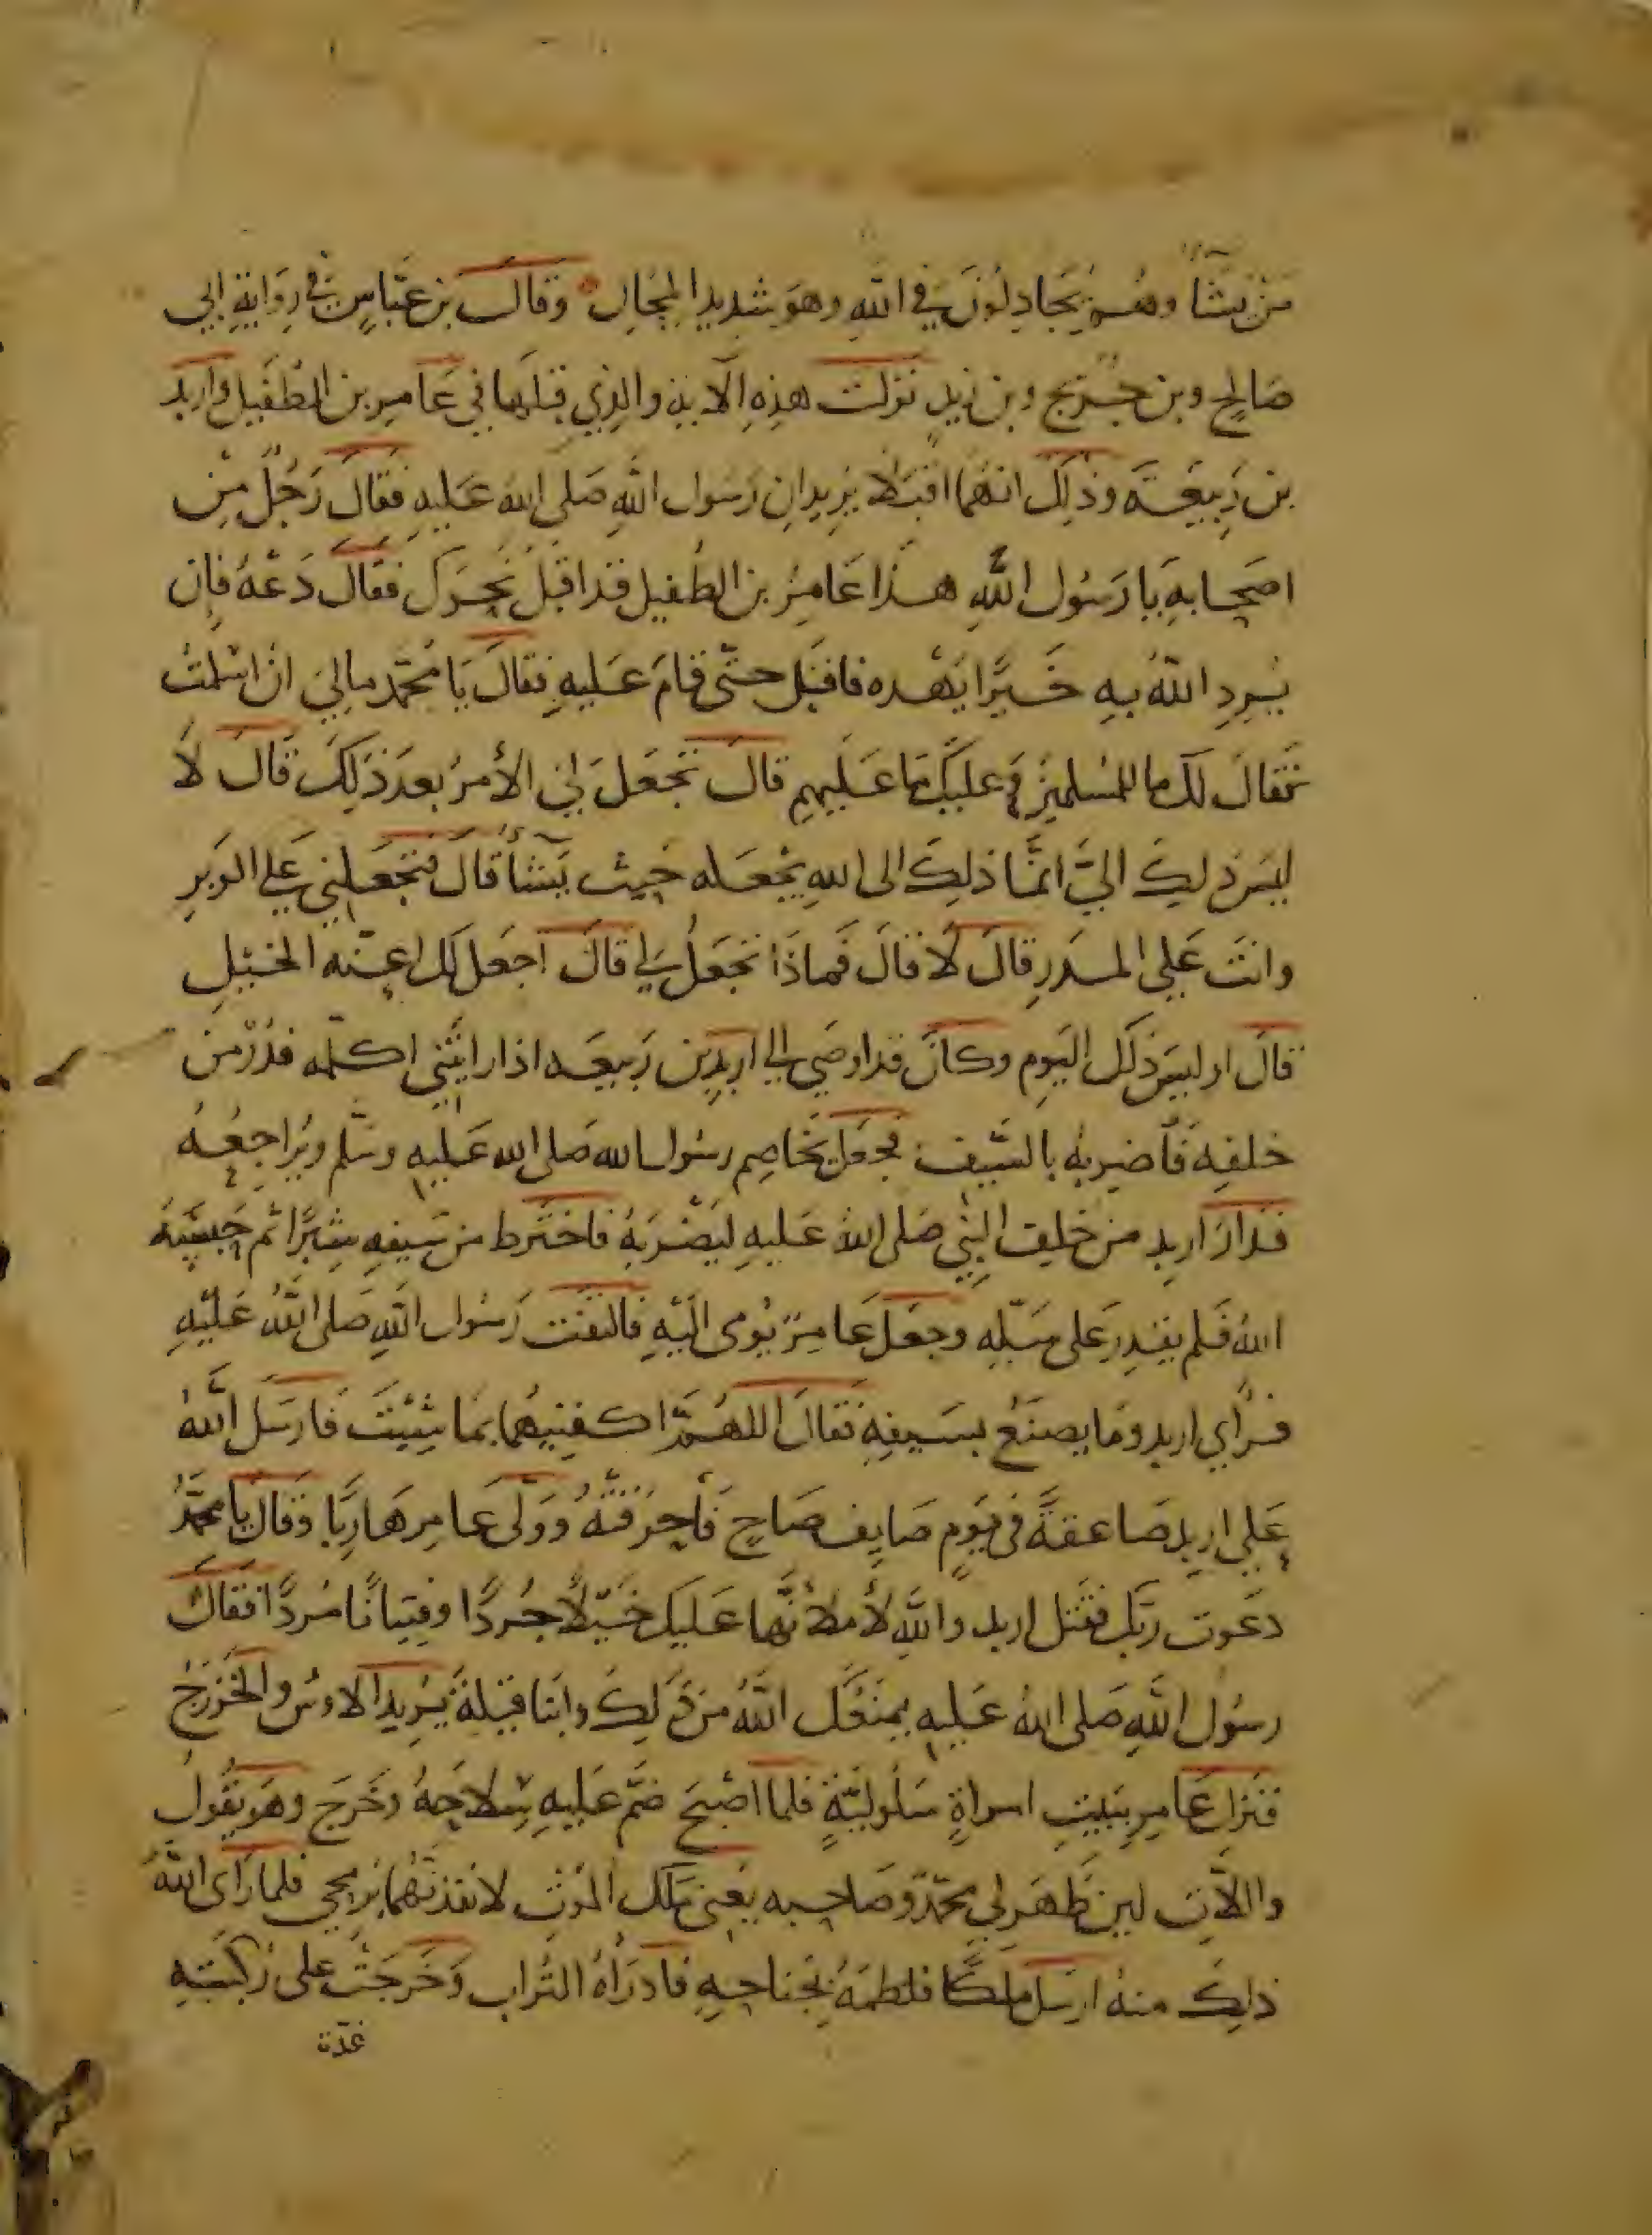 مَنْ يَشَآءُ وهُم يُجَادِلُونَ في اللهِ وهوَ شديدُ المِحَالِ وقالَ بن عبَّاسٍ في رِوَايةِ ابي
صَالحٍ وبن جُريج وبن زيدٍ نزلت هذِهِ الآية والذِي قبلَها في عَامِرِ بن الطُفَيل واربد
بن رَبيعَة وذلِكَ انهُما اقبَلا يُريدانِ رَسُول اللهِ صَلى اللهُ عَليهِ فقالَ رَجُلٌ مِن
اصحابهِ يا رَسُول اللهِ هذا عَامِرُ بن الطُفيل قد اقبَلَ نحوَك فقالَ دَعْهُ فاِن
يُرِدِ اللهُ بهِ خَيرًا يَهْده فاقبَل حتّى قامَ عَليهِ فقالَ يَا مُحمّد مالِيَ ان اسْلمتُ
فقالَ لك ما للمُسلمينَ وعليكَ مَا عَليهِم قالَ تجعَل لِيَ الأمرُ بعدَ ذلِكَ قالَ لا
ليسَ ذلِكَ اليَّ انمَّا ذلِكَ الى اللهِ يجْعَله حيث يَشآءُ قالَ فتجعَلني على الوَبرِ
وانتَ عَلى المدَرِ قالَ لا قالَ فَماذَا تجعَلُ لي قالَ اجعَل لك اعنّه الخيلِ
قالَ اوليسَ ذلك اليَومِ وكانَ قد اوصَى الى اربد بن رَبيعَه اذا رايتَني اكلّمه فدُرْ من
خلفِهِ فاضربهُ بالسَّيف فجعَل يخاصِم رسُول الله صَلى الله عَليهِ وسَلّم ويُراجِعُهُ
فدارَ اربد من خلف النبِي صَلى اللهُ عَليهِ ليَضْرَبهُ فاختَرط من سَيفهِ شِبرًا ثم حَبسَهُ
اللهُ فَلم يقدِر عَلى سَلّهِ وجعَلَ عَامِرٌ يُومى اليْهِ فالتفَتَ رَسُول اللهِ صَلى اللهُ عَليْهِ
فرأي اربد ومَا يصنَعُ بسَيفِهِ فقالَ اللهُمَّ اكفِنيهُما بمَا شِئْتَ فارسَل اللهُ
عَلى اربد صَاعقةً في يَومٍ صَايِف صَاحٍ فأحرَقتْهُ ووَلّى عَامِر هَارِبًا وقالَ يا محمّدُ
دعَوت ربّك فقتَل اربد واللهِ لأملأنّها عَليك خيْلًا جُردًا وفِتيانًا مُردًا فقالَ
رسُول اللهِ صَلى اللهُ عَليهِ يمنَعُك اللهُ من ذلِكَ وابنا قيلةَ يُريد الاوسُ والخَزرَجُ
فنزل عَامِرِ ببَيتِ امراةٍ سَلُوليّةٍ فلما اصْبحَ ضمّ عَليهِ سِلاحَهُ وخَرَج وهوَ يقُولُ
واللآتِ لين ظَهَر لي محمّدٌ وصَاحبه يعْنى مَلَك المَوتِ لانفذنّهُما برُمحِي فلما رَأى اللهُ
ذلِكَ منهُ ارسَل ملَكًا فلطمَهُ بجَناحِهِ فادرَاهُ التُراب وخَرجَتْ على رُكبَتِهِ
غدّة